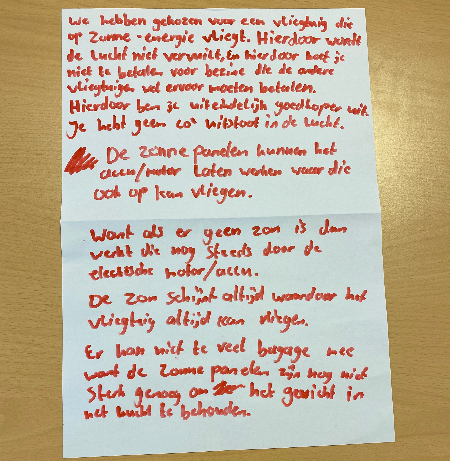 We hebben gekozen voor een vliegtuig die
op zonne-energie vliegt. Hierdoor wordt
de lucht niet vervuilt, En hierdoor hoef je
niet te betalen voor bezine die de andere
vliegtuigen wel ervoor moeten betalen.
Hierdoor ben je uiteindelijk goedkoper uit.
Je hebt geen co² uitstoot in de lucht.
De zonne panelen kunnen het
accu/motor laten werken waar die
ook op kan vliegen.
Want als er geen zon is dan
werkt die nog steeds door de
electische motor/accu.
De zon schijnt altijd waardoor het
vliegtuig altijd kan vliegen.
Er kan niet te veel bagage mee
want de zonne panelen zijn nog niet
sterk genoeg om het gewicht in
het lucht te behouden.